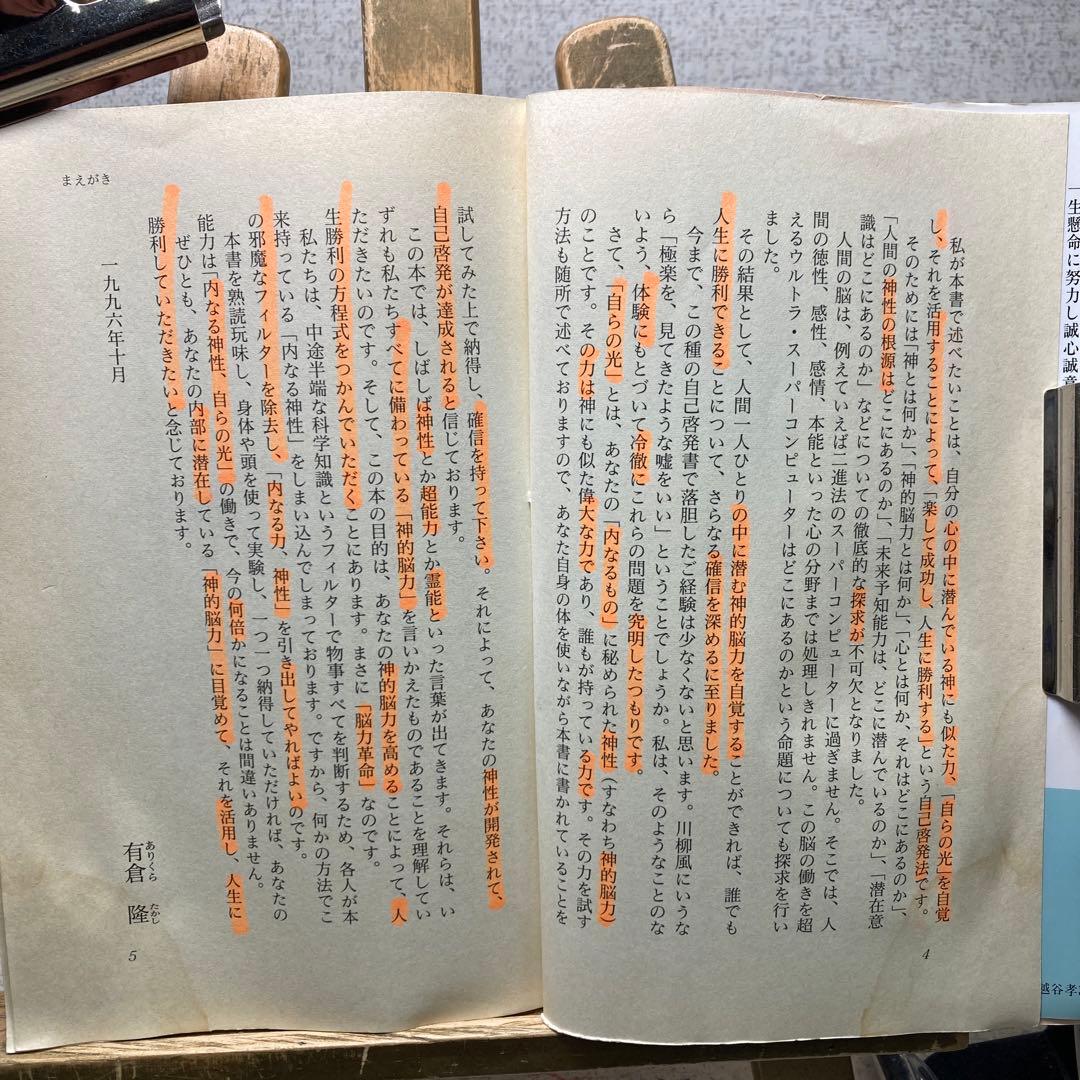 一生懸命に努力し誠心誠意
越谷孝
私が本書で述べたいことは、自分の心の中に潜んでいる神にも似た力、「自らの光」を自覚
し、それを活用することによって、「楽して成功し、人生に勝利する」という自己啓発法です。
そのためには「神とは何か」、「神的脳力とは何か」、「心とは何か、それはどこにあるのか」、
「人間の神性の根源はどこにあるのか」、「未来予知能力は、どこに潜んでいるのか」、「潜在意
識はどこにあるのか」などについての徹底的な探求が不可欠となりました。
人間の脳は、例えていえば二進法のスーパーコンピューターに過ぎません。そこでは、人
間の徳性、感性、感情、本能といった心の分野までは処理しきれません。この脳の働きを超
えるウルトラ・スーパーコンピューターはどこにあるのかという命題についても探求を行い
ました。
その結果として、人間一人ひとりの中に潜む神的脳力を自覚することができれば、誰でも
人生に勝利できることについて、さらなる確信を深めるに至りました。
今まで、この種の自己啓発書で落胆したご経験は少なくないと思います。川柳風にいうな
ら「極楽を、見てきたような嘘をいい」ということでしょうか。私は、そのようなことのな
いよう、体験にもとづいて冷徹にこれらの問題を究明したつもりです。
さて、「自らの光」とは、あなたの「内なるもの」に秘められた神性(すなわち神的脳力)
のことです。その力は神にも似た偉大な力であり、誰もが持っている力です。その力を試す
方法も随所で述べておりますので、あなた自身の体を使いながら本書に書かれていることを
4
まえがき
試してみた上で納得し、確信を持って下さい。それによって、あなたの神性が開発されて、
自己啓発が達成されると信じております。
この本では、しばしば神性とか超能力とか霊能といった言葉が出てきます。それらは、い
ずれも私たちすべてに備わっている「神的脳力」を言いかえたものであることを理解してい
ただきたいのです。そして、この本の目的は、あなたの神的脳力を高めることによって、人
生勝利の方程式をつかんでいただくことにあります。まさに「脳力革命」なのです。
私たちは、中途半端な科学知識というフィルターで物事すべてを判断するため、各人が本
来持っている「内なる神性」をしまい込んでしまっております。ですから、何かの方法でこ
の邪魔なフィルターを除去し、「内なる力、神性」を引き出してやればよいのです。
本書を熟読玩味し、身体や頭を使って実験し、一つ一つ納得していただければ、あなたの
能力は「内なる神性、自らの光」の働きで、今の何倍かになることは間違いありません。
ぜひとも、あなたの内部に潜在している「神的脳力」に目覚めて、それを活用し、人生に
勝利していただきたいと念じております。
一九九六年十月
有倉 隆
ありくら たかし
5